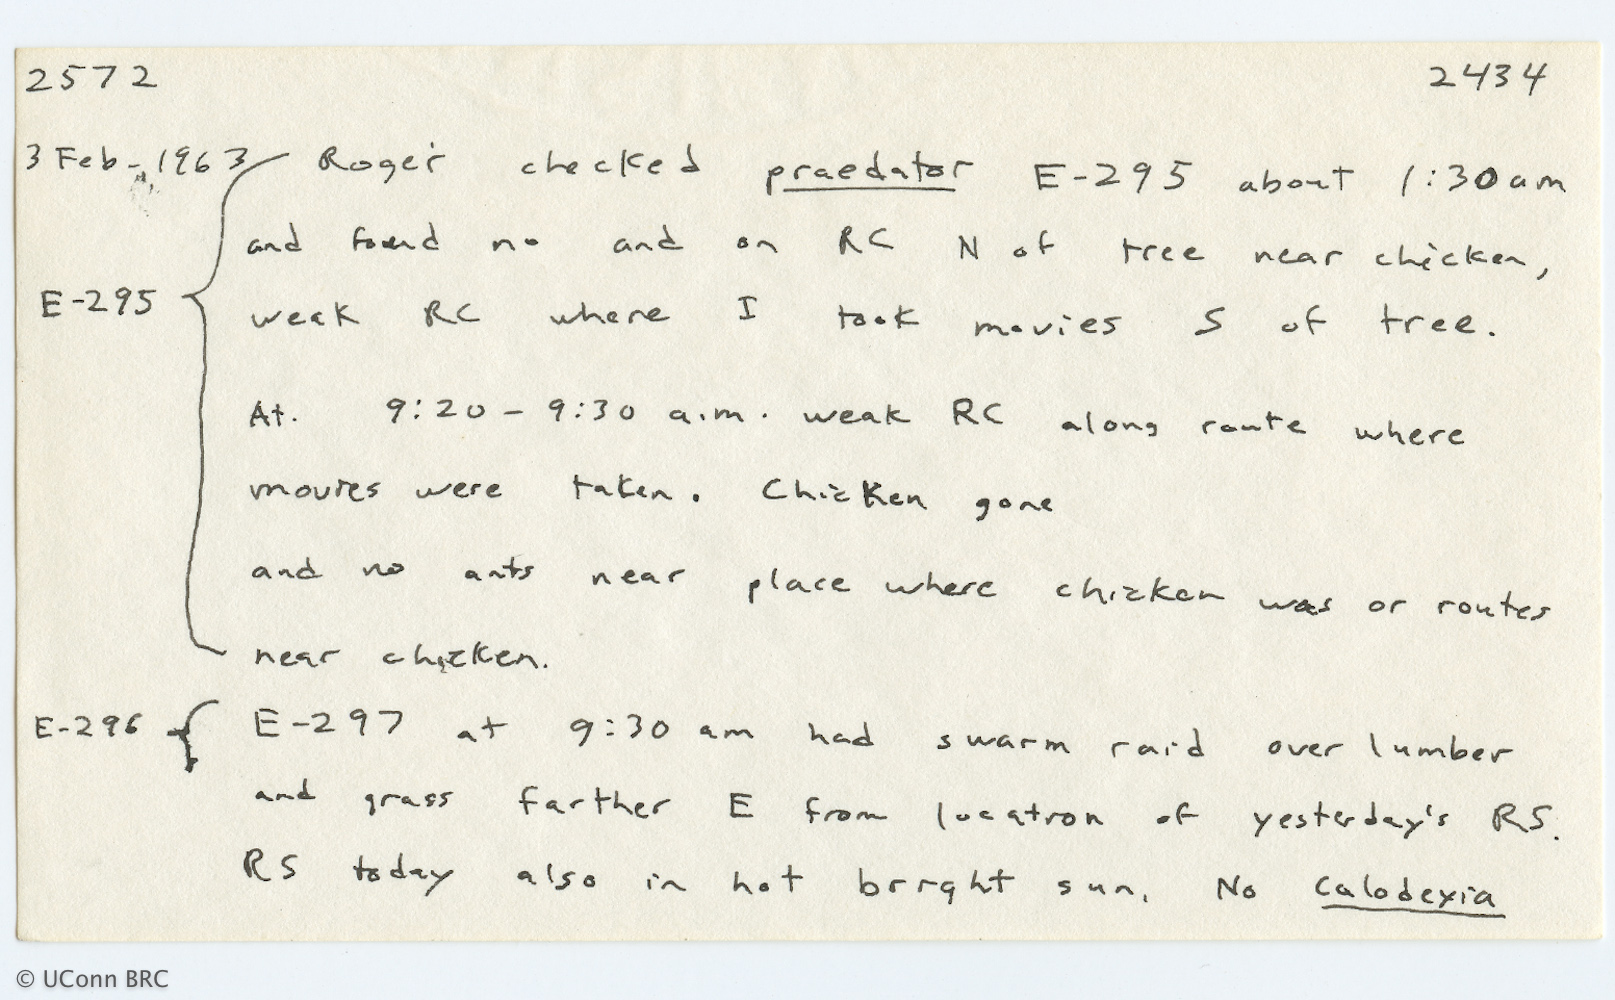 2572 2434
3 Feb. 1963 Roger checked praedator E-295 about 1:30am
and found no and on RC N of tree near chicken,
E-295 weak RC where I took movies S of tree.
At. 9:20 - 9:30 a.m. weak RC along route where
movies were taken. Chicken gone
and no ants near place where chicken was or routes
near chicken.
E-296 E-297 at 9:30 am had swarm raid over lumber
and grass farther E from location of yesterday's RS.
RS today also in hot bright sun. No Calodexia
© UConn BRC